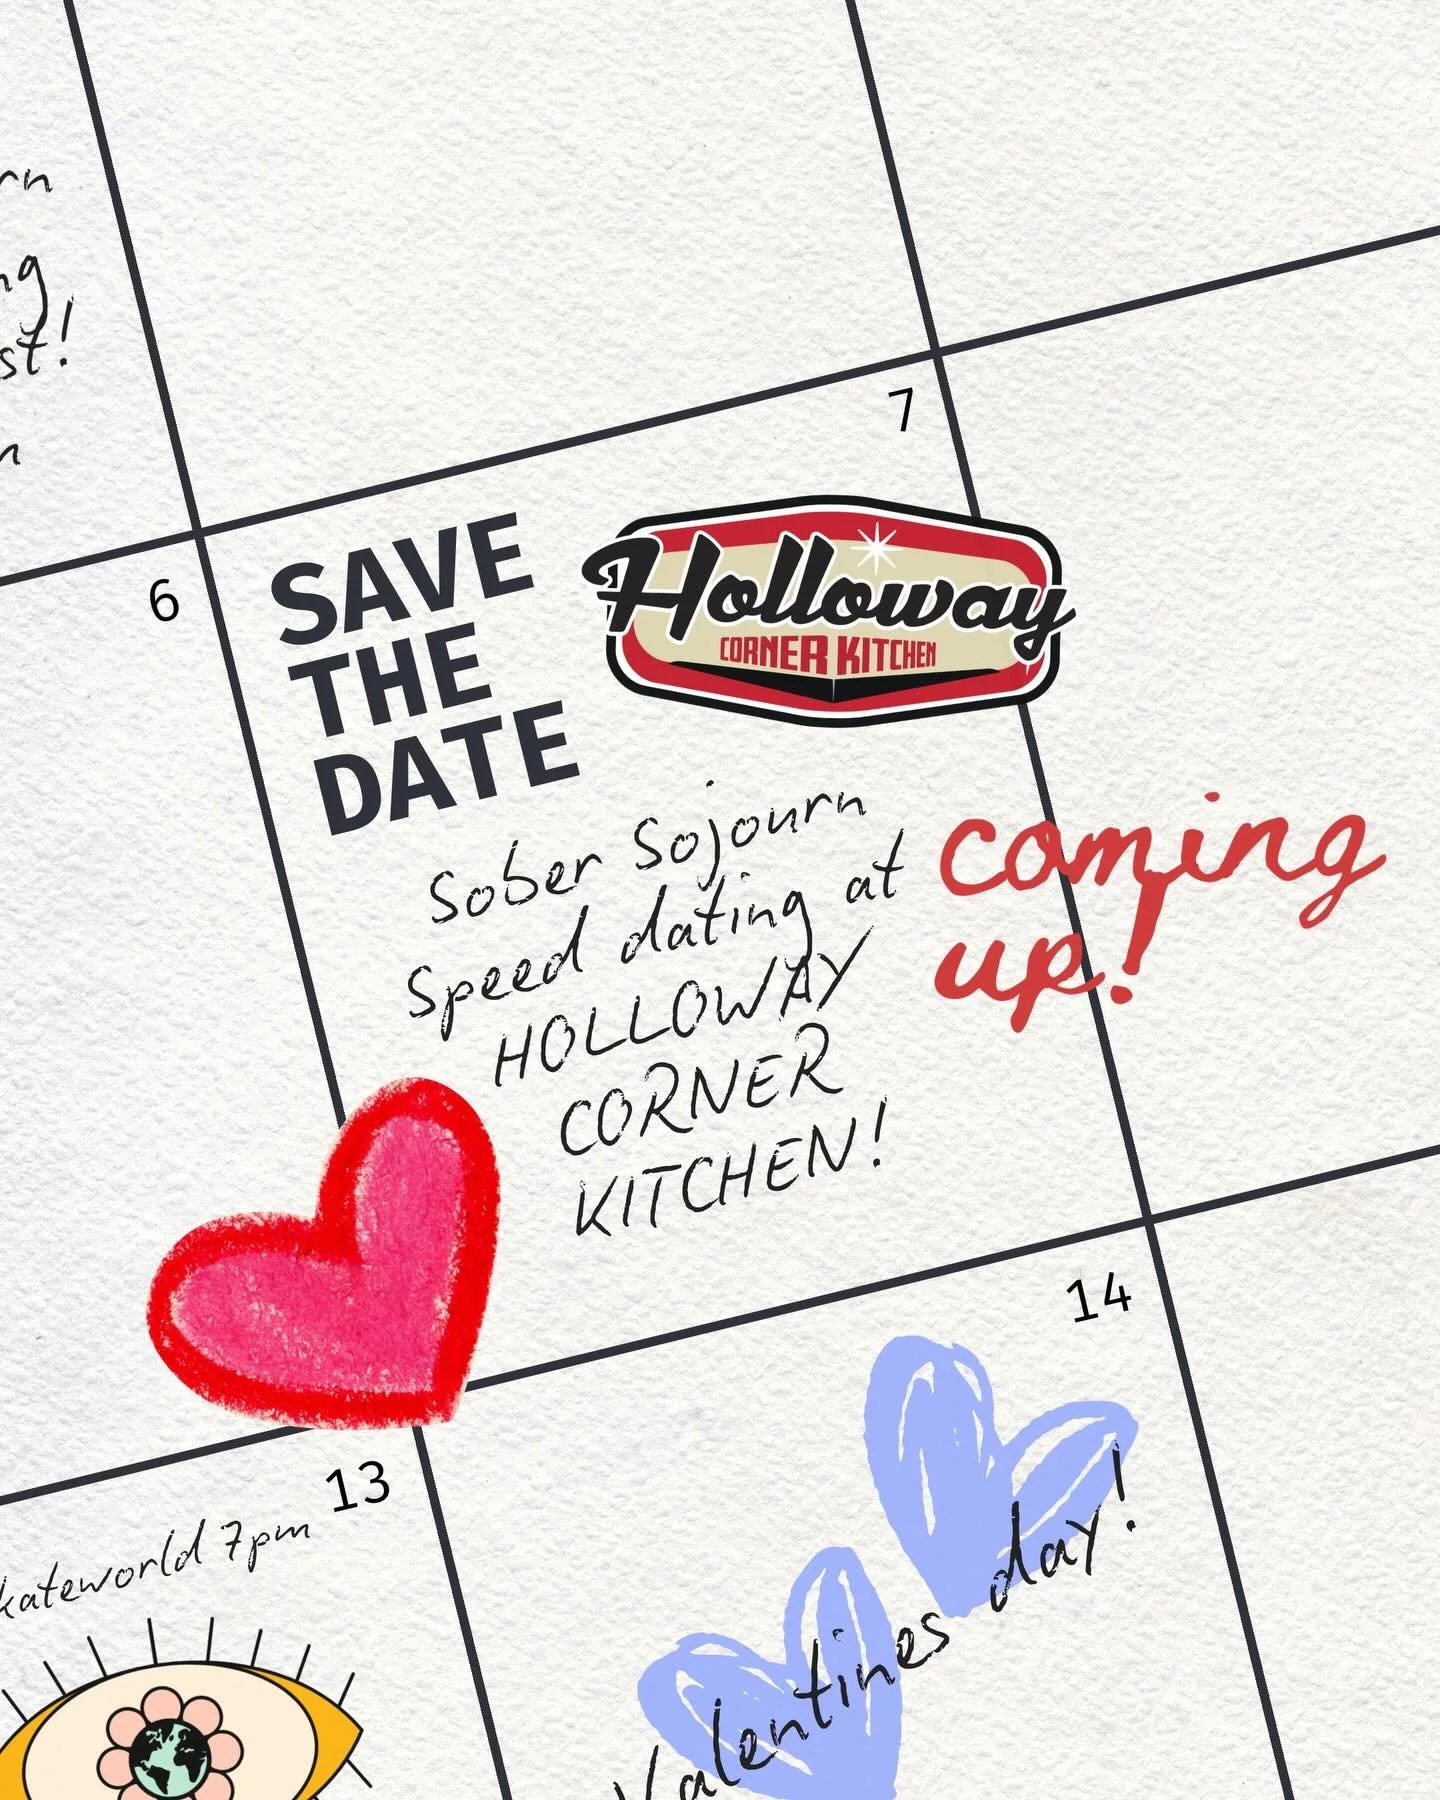 7
6
SAVE
THE
DATE
Holloway
CORNER KITCHEN
Sober Sojourn
Speed dating at
HOLLOWAY
CORNER
KITCHEN!
coming
up!
14
13
7pm
Valentines day!